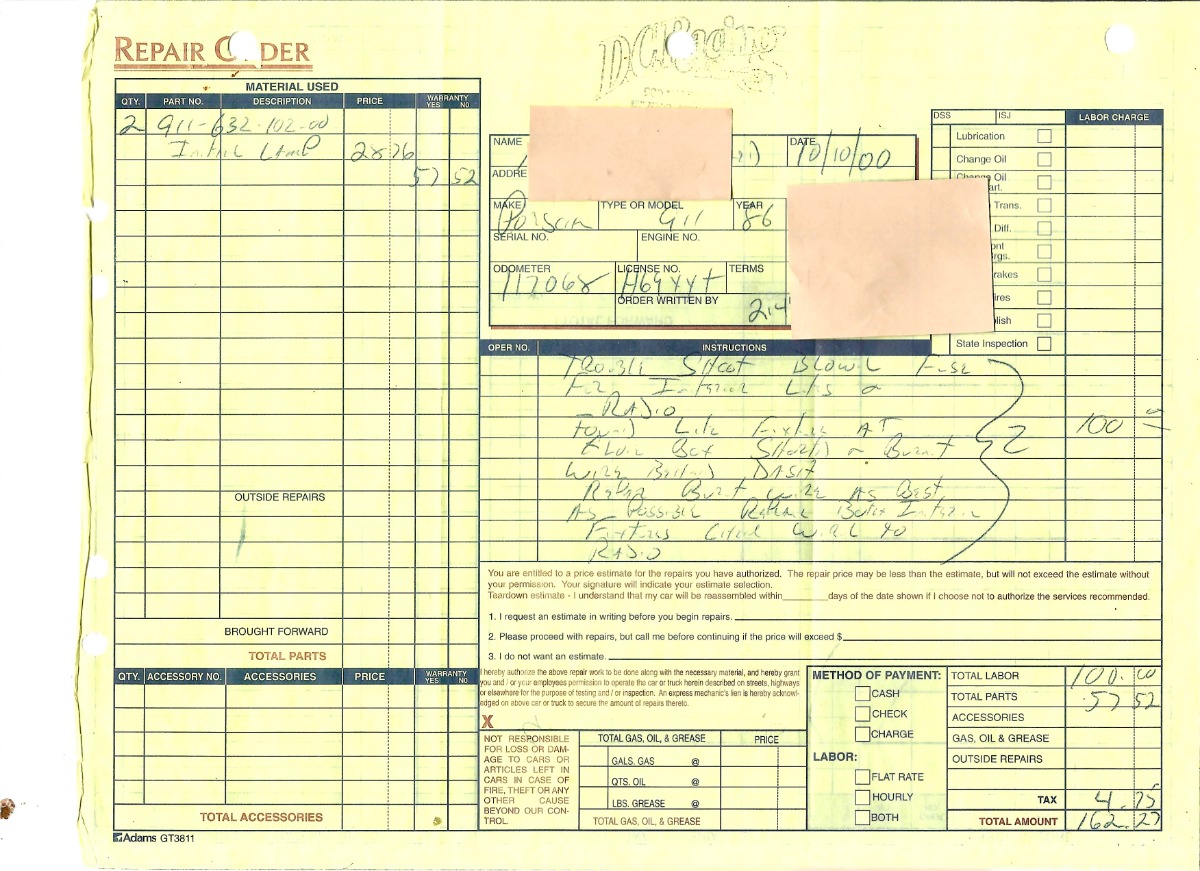 REPAIR ORDER
MATERIAL USED
QTY. PART NO. DESCRIPTION PRICE WARRANTY YES NO
2 911-632-102-00
Lamp 28 76
57 52
OUTSIDE REPAIRS
BROUGHT FORWARD
TOTAL PARTS
QTY. ACCESSORY NO. ACCESSORIES PRICE WARRANTY YES NO
TOTAL ACCESSORIES
Adams GT3811
NAME
DATE 10/10/00
ADDRE
MAKE TYPE OR MODEL 911 YEAR 86
SERIAL NO. ENGINE NO.
ODOMETER 117068 LICENSE NO. TERMS
ORDER WRITTEN BY
DSS ISJ LABOR CHARGE
Lubrication
Change Oil
Change Oil
art.
Trans.
Diff.
ont
rgs.
rakes
ires
lish
State Inspection
OPER NO. INSTRUCTIONS
Trouble Shoot Blown Fuse
For Interior Lites
Radio
Found Lite Fixture AT
Burnt 100
Wire Behind Dash
Burnt wire As Best
As Possible
Radio
You are entitled to a price estimate for the repairs you have authorized. The repair price may be less than the estimate, but will not exceed the estimate without
your permission. Your signature will indicate your estimate selection.
Teardown estimate - I understand that my car will be reassembled within________days of the date shown if I choose not to authorize the services recommended.
1. I request an estimate in writing before you begin repairs.
2. Please proceed with repairs, but call me before continuing if the price will exceed $
3. I do not want an estimate.
I hereby authorize the above repair work to be done along with the necessary material, and hereby grant
you and / or your employees permission to operate the car or truck herein described on streets, highways
or elsewhere for the purpose of testing and / or inspection. An express mechanic's lien is hereby acknowl-
edged on above car or truck to secure the amount of repairs thereto.
X
NOT RESPONSIBLE
FOR LOSS OR DAM-
AGE TO CARS OR
ARTICLES LEFT IN
CARS IN CASE OF
FIRE, THEFT OR ANY
OTHER CAUSE
BEYOND OUR CON-
TROL.
TOTAL GAS, OIL, & GREASE PRICE
GALS. GAS @
QTS. OIL @
LBS. GREASE @
TOTAL GAS, OIL, & GREASE
METHOD OF PAYMENT:
CASH
CHECK
CHARGE
LABOR:
FLAT RATE
HOURLY
BOTH
TOTAL LABOR 100.00
TOTAL PARTS 57 52
ACCESSORIES
GAS, OIL & GREASE
OUTSIDE REPAIRS
TAX 4.75
TOTAL AMOUNT 162.27